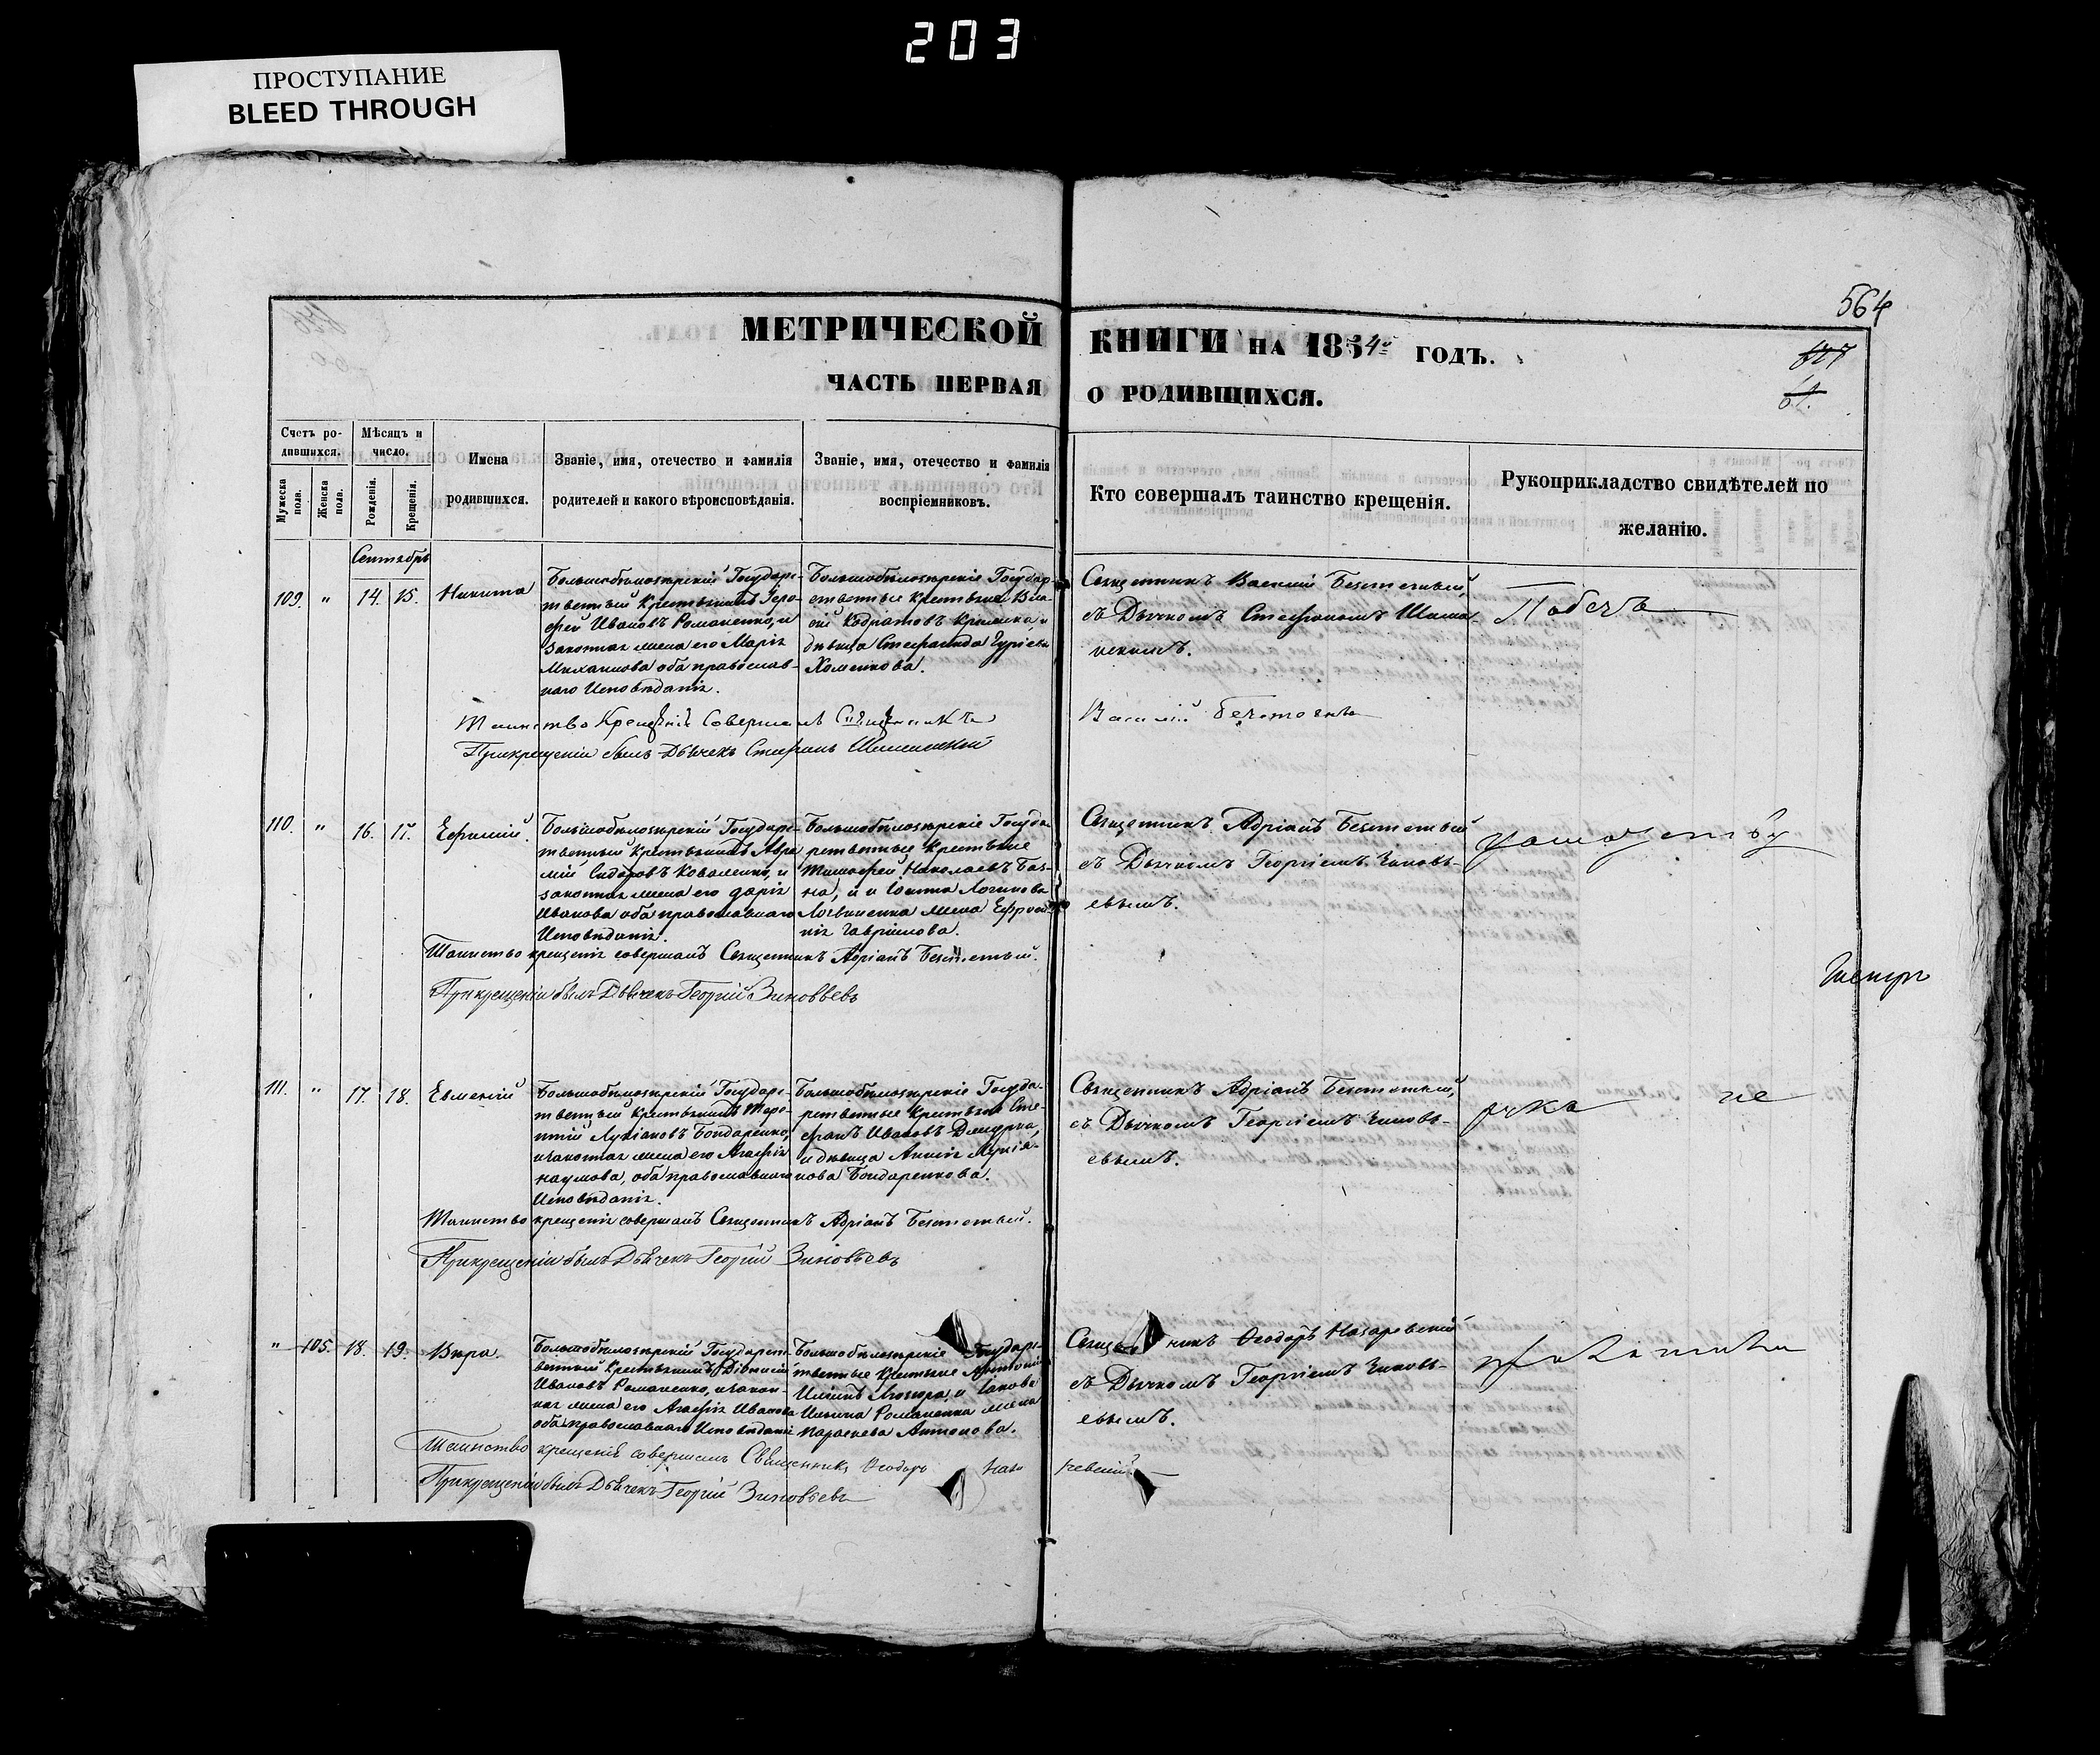 203
ПРОСТУПАНИЕ
BLEED THROUGH
564
МЕТРИЧЕСКОЙ КНИГИ НА 1854го ГОДЪ.
627
61.
ЧАСТЬ ПЕРВАЯ О РОДИВШИХСЯ.
Счетъ родившихся.
Мужеска пола.
Женска пола.
Мѣсяцъ и число.
Рожденія.
Крещенія.
Имена родившихся.
Званіе, имя, отечество и фамилія родителей и какого вѣроисповѣданія.
Званіе, имя, отечество и фамилія воспріемниковъ.
Кто совершалъ таинство крещенія.
Рукоприкладство свидѣтелей по желанію.
Сентябрь
109. " 14. 15. Никита
Большобѣлозѣрскій Государс-
твенный Крестьянинъ Геро-
фей Ивановъ Романенко, и
законная жена его Марія
Михаилова оба православ-
наго Исповѣданія.
Большобѣлозѣрскіе Государ
ственные Крестьяне Васи-
лій Кодратовъ и
дѣвица Стефанида Гуріева
Хоменкова.
Священникъ Василій Безсчетный,
съ Дьячкомъ Стефаномъ
Таинство Крещенія Совершалъ Священникъ
Василій
При крещеніи былъ Дьячекъ Стефанъ
110. " 16. 17. Ефимій.
Большобѣлозѣрскій Государс-
твенный Крестьянинъ
Сидоровъ Коваленко, и
законная жена его Дарія
Иванова оба православнаго
Исповѣданія.
Большобѣлозѣрскіе Госуда
рственные Крестьяне
Тимофей Николаевъ
и Іоанна Логинова
Логвиненка жена
Гавріилова.
Священникъ Адріанъ Безсчетный
съ Дьячкомъ Георгіемъ Зиновь-
евымъ.
Таинство крещенія совершалъ Священникъ Адріанъ Безсчетный.
При крещеніи былъ Дьячекъ Георгій Зиновьевъ
111. " 17. 18. Евменій
Большобѣлозѣрскій Государс-
твенный Крестьянинъ Тере-
нтій Лукіановъ Бондаренко,
и законная жена его Агафія
Наумова, оба православнаго
Исповѣданія.
Большобѣлозѣрскіе Госуда-
рственные Крестьяне Сте-
фанъ Ивановъ
и дѣвица Аннія Лукіа-
нова Бондаренкова.
Священникъ Адріанъ Безсчетный,
съ Дьячкомъ Георгіемъ Зиновь-
евымъ.
рука не
Таинство крещенія совершалъ Священникъ Адріанъ Безсчетный.
При крещеніи былъ Дьячекъ Георгій Зиновьевъ
" 105. 18. 19. Вѣра.
Большобѣлозѣрскій Государст-
венный Крестьянинъ Діонисій
Ивановъ Романенко, и закон-
ная жена его Агафія Иванова
оба православнаго Исповѣданія
Большобѣлозѣрскіе Государс-
твенные Крестьяне Антоній
и Іакова
Ильина Романенка жена
Параскева Антонова.
Священникъ Ѳеодоръ Назаревскій
съ Дьячкомъ Георгіемъ Зиновь-
евымъ.
Таинство крещенія совершалъ Священникъ Ѳеодоръ Наза ревскій
При крещеніи былъ Дьячекъ Георгій Зиновьевъ